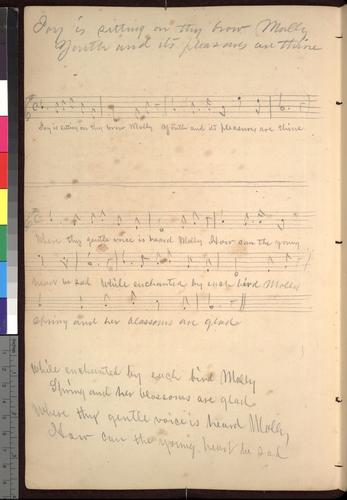 Joy is sitting on thy brow Molly
Youth and its pleasures are thine
Joy is sitting on thy brow Molly Youth and its pleasures are thine
Where thy gentle voice is heard Molly How can the young
heart be sad While enchanted by each bird Molly
Spring and her blossoms are glad
While enchanted by each bird Molly
Spring and her blossoms are glad
Where thy gentle voice is heard Molly
How can the young heart be sad